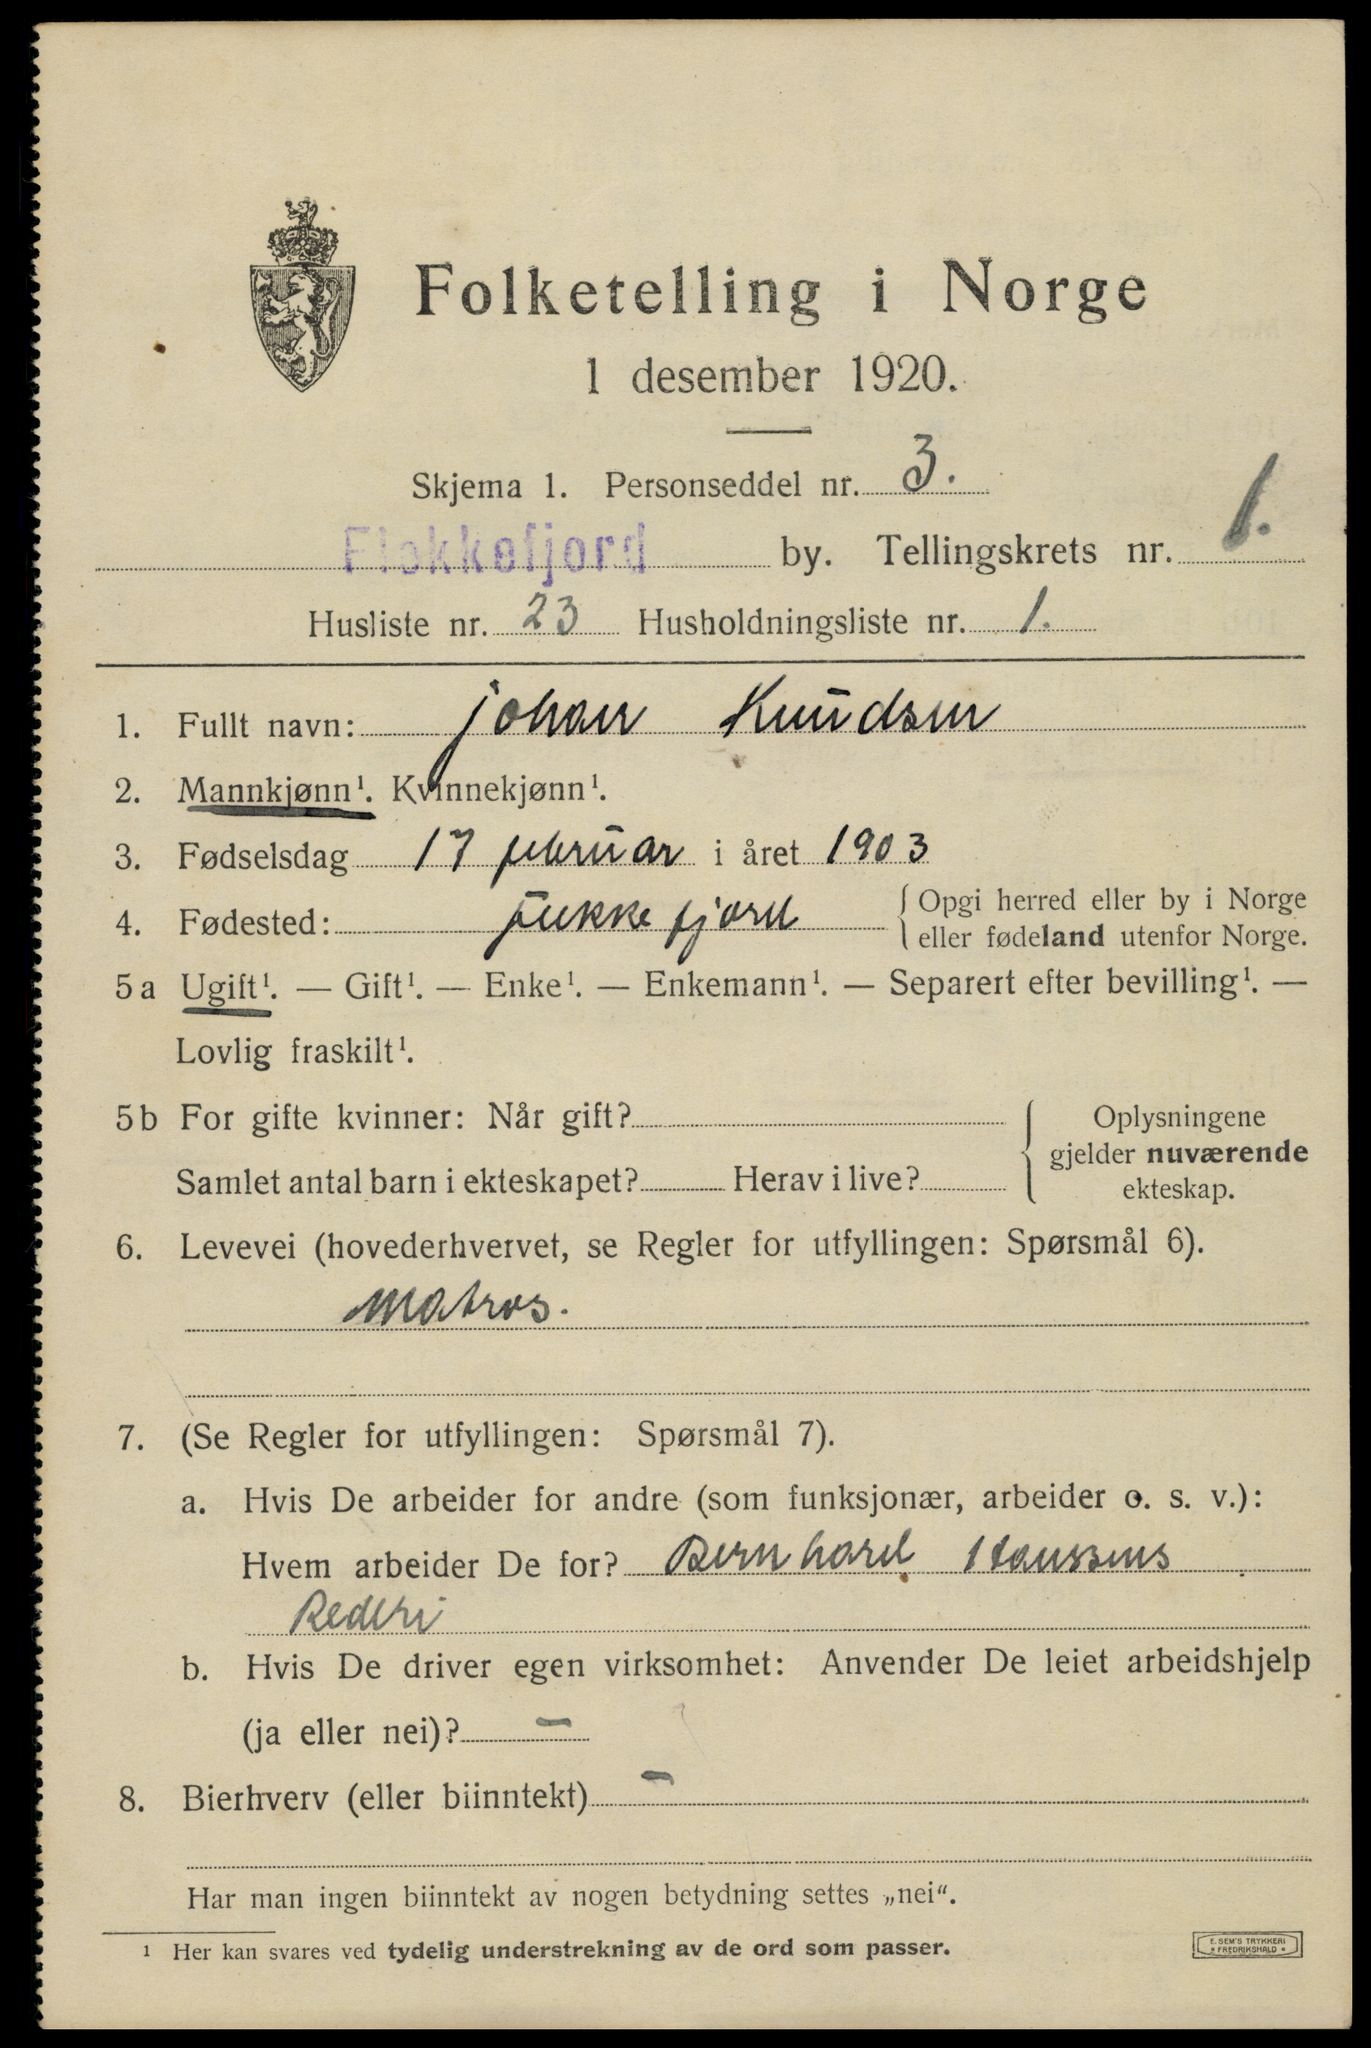 Folketelling i Norge
1 desember 1920.
Skjema 1. Personseddel nr. 3.
Flekkefjord by. Tellingskrets nr. 1.
Husliste nr. 23 Husholdningsliste nr. 1.
1. Fullt navn: Johan Knudsen
2. Mannkjønn¹. Kvinnekjønn¹.
3. Fødselsdag 17 februar i året 1903
4. Fødested: Flekkefjord { Opgi herred eller by i Norge
eller fødeland utenfor Norge.
5a Ugift¹. — Gift¹. — Enke¹. — Enkemann¹. — Separert efter bevilling¹. —
Lovlig fraskilt¹.
5b For gifte kvinner: Når gift?
Samlet antal barn i ekteskapet? Herav i live?
{ Oplysningene
gjelder nuværende
ekteskap.
6. Levevei (hovederhvervet, se Regler for utfyllingen: Spørsmål 6).
Matros.
7. (Se Regler for utfyllingen: Spørsmål 7).
a. Hvis De arbeider for andre (som funksjonær, arbeider o. s. v.):
Hvem arbeider De for? Bernhard Hanssens
Rederi
b. Hvis De driver egen virksomhet: Anvender De leiet arbeidshjelp
(ja eller nei)? —
8. Bierhverv (eller biinntekt) —
Har man ingen biinntekt av nogen betydning settes „nei“.
¹ Her kan svares ved tydelig understrekning av de ord som passer.
E. SEM'S TRYKKERI
* FREDRIKSHALD *